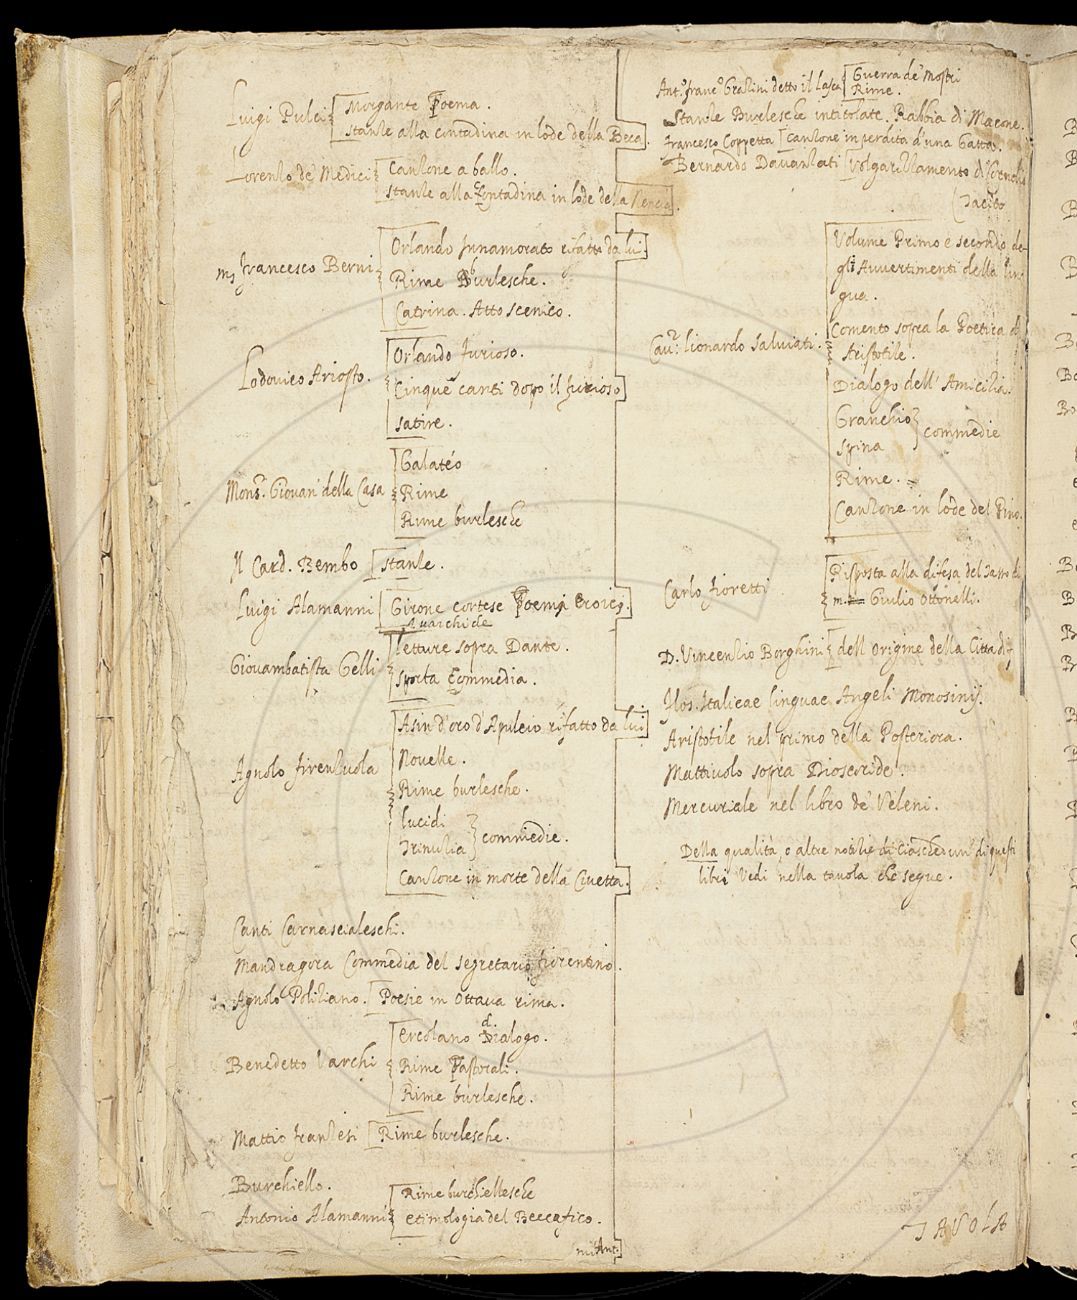 Luigi Pulci
Morgante Poema.
Stanze alla contadina in lode della Beca.
Lorenzo de' Medici
Canzone a ballo.
Stanze alla Contadina in lode della Nencia.
Ms Francesco Berni
Orlando Innamorato rifatto da lui.
Rime Burlesche.
Catrina. Atto scenico.
Lodovico Ariosto.
Orlando Furioso.
Cinque canti dopo il furioso
Satire.
Mons.r Giovan' della Casa
Galatéo
Rime
Rime burlesche
Il Card. Bembo
Stanze.
Luigi Alamanni
Girone cortese Poemi Eroici.
Avarchide
Giovambatista Gelli
letture sopra Dante.
Sporta Commedia.
Agnolo Firenzuola
Asin d'oro d'Apuleio rifatto da lui
Novelle.
Rime burlesche.
lucidi
Trinuzia
commedie.
Canzone in morte della Civetta.
Canti Carnascialeschi.
Mandragora Commedia del Segretario fiorentino.
Agnolo Poliziano.
Poesie in Ottava rima.
Benedetto Varchi
Ercolano Dialogo.
Rime Pastorali.
Rime burlesche.
Mattio Franzesi
Rime burlesche.
Burchiello.
Antonio Alamanni
Rime burchiellesche
Etimologia del Beccafico.
Ant.
Ant.o Franc.o Grazini detto il Lasca
Guerra de' Mostri
Rime.
Stanze Burlesche intitolate. Rabbia di Macone.
Francesco Coppetta
Canzone in perdita d'una Gatta.
Bernardo Davanzati
Volgarizzamento di Cornelio
Tacito
Cav.r Lionardo Salviati.
Volume Primo e secondo de-
gli Avvertimenti della lin
gua.
Comento sopra la Poetica d'
Aristotile.
Dialogo dell'Amicizia.
Granchio
Spina
commedie
Rime.
Canzone in lode del Pino.
Carlo Fioretti
Risposta alla difesa del Tasso di
m. Giulio Ottonelli.
D. Vincenzio Borghini
dell'Origine della Città di f.
Flos. Italicae linguae Angeli Monosinij.
Aristotile nel primo della Posteriora.
Mattiuolo sopra Dioscoride.
Mercuriale nel libro de' Veleni.
Della qualità, o altre notizie di ciascheun' di questi
libri Vedi nella tavola che segue.
TAVOLA